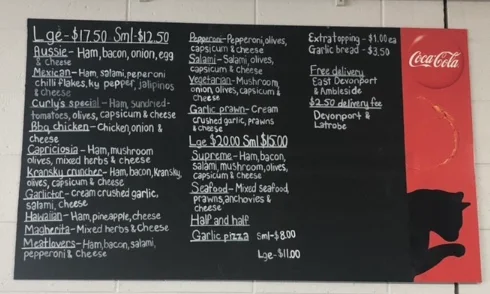 Lge-$17.50 Sml-$12.50
Aussie-Ham, bacon, onion, egg
& cheese
Mexican-Ham, salami, peperoni
chilli flakes, ky pepper, jalipinos
& cheese
Curly's special-Ham, sundried-
tomatoes, olives, capsicum & cheese
Bbq chicken-Chicken, onion &
cheese
Capriciosia-Ham, mushroom
olives, mixed herbs & cheese
Kransky cruncher-Ham, bacon, Kransky,
olives, capsicum & cheese
Garlictor-cream crushed garlic,
salami, cheese
Hawaiian-Ham, pineapple, cheese
Magherita-Mixed herbs & Cheese
Meatlovers-Ham, bacon, salami,
pepperoni & Cheese
Pepperoni-Pepperoni, olives,
capsicum & cheese
Salami-Salami, olives,
capsicum & cheese
Vegetarian-Mushroom,
onion, olives, capsicum &
cheese
Garlic prawn-Cream
crushed garlic, prawns
& cheese
Lge $20.00 Sml $15.00
Supreme-Ham, bacon,
salami, mushroom, olives,
capsicum & cheese
Seafood-Mixed seafood,
prawns, anchovies &
cheese
Half and half
Garlic pizza Sml-$8.00
Lge-$11.00
Extra topping-$1.00 ea
Garlic bread-$3.50
Free delivery
East Devonport
& Ambleside
$2.50 delivery fee
Devonport &
Latrobe
Coca-Cola